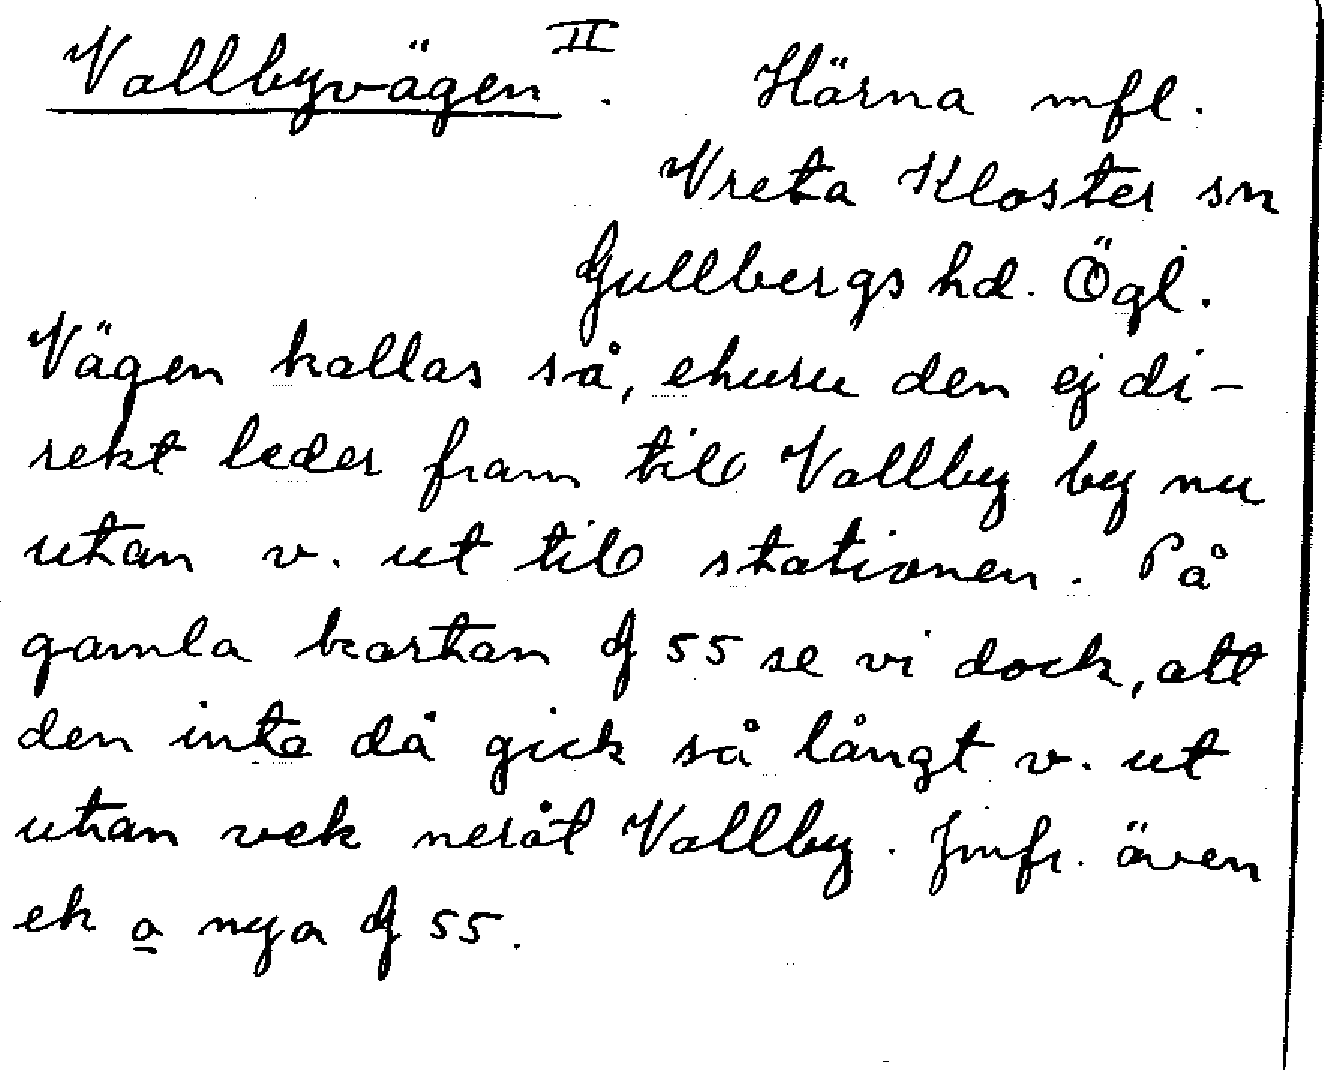 Vallbyvägen II. Härna mfl.
Vreta Kloster sn
Gullbergs hd. Ögl.
Vägen kallas så, ehuru den ej di-
rekt leder fram till Vallby by nu
utan v. ut till stationen. På
gamla kartan G 55 se vi dock, att
den inte då gick så långt v. ut
utan vek neråt Vallby. Jmfr. även
ek a nya G 55.